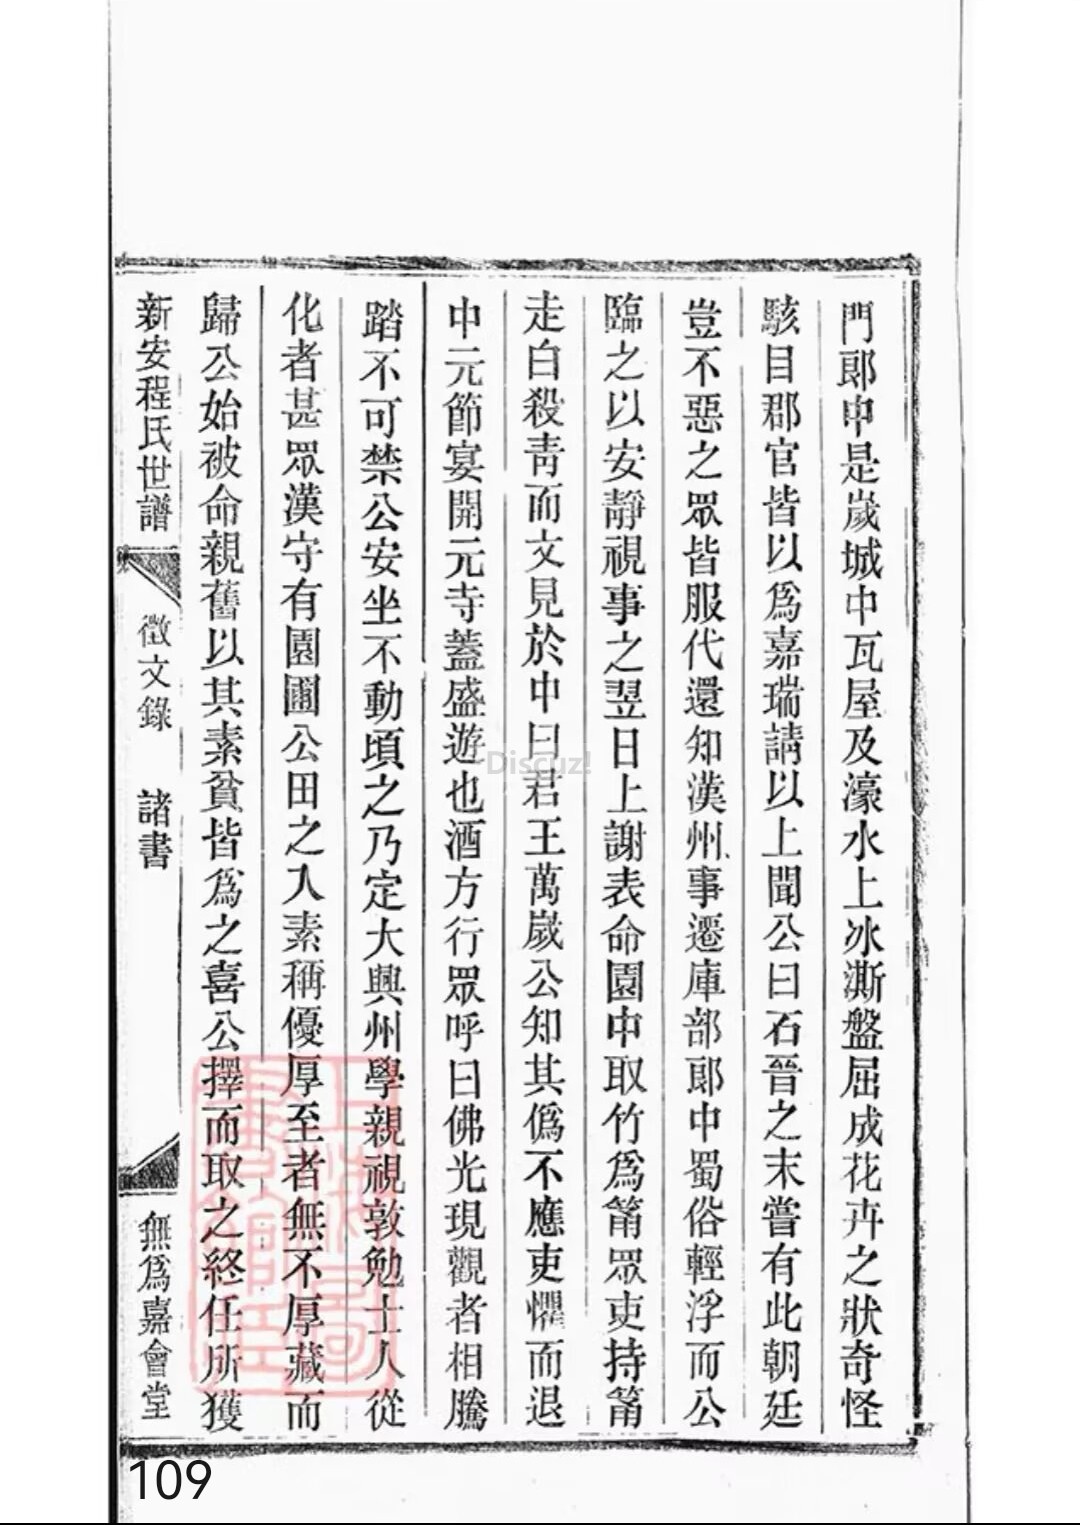 門郎中是歲城中瓦屋及濠水上冰澌盤屈成花卉之狀奇怪
駭目郡官皆以爲嘉瑞請以上聞公曰石晉之末嘗有此朝廷
豈不惡之眾皆服代還知漢州事遷庫部郎中蜀俗輕浮而公
臨之以安靜視事之翌日上謝表命園中取竹爲筩眾吏持筩
走白殺靑而文見於中曰君王萬歲公知其僞不應吏懼而退
中元節宴開元寺蓋盛遊也酒方行眾呼曰佛光現觀者相騰
踏不可禁公安坐不動頃之乃定大興州學親視敦勉士人從
化者甚眾漢守有園圃公田之入素稱優厚至者無不厚藏而
歸公始被命親舊以其素貧皆爲之喜公擇而取之終任所獲
新安程氏世譜 徵文錄 諸書 無爲嘉會堂
Discuz!
109